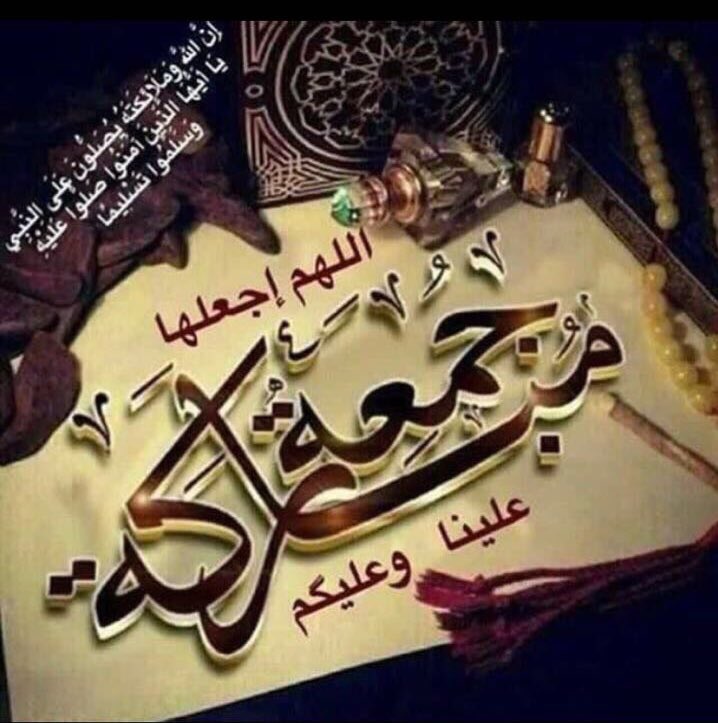 إِنَّ اللَّهَ وَمَلَائِكَتَهُ يُصَلُّونَ عَلَى النَّبِيِّ
يَا أَيُّهَا الَّذِينَ آمَنُوا صَلُّوا عَلَيْهِ
وَسَلِّمُوا تَسْلِيمًا
اللهم إجعلها
جُمعة
مُباركة
علينا وعليكم